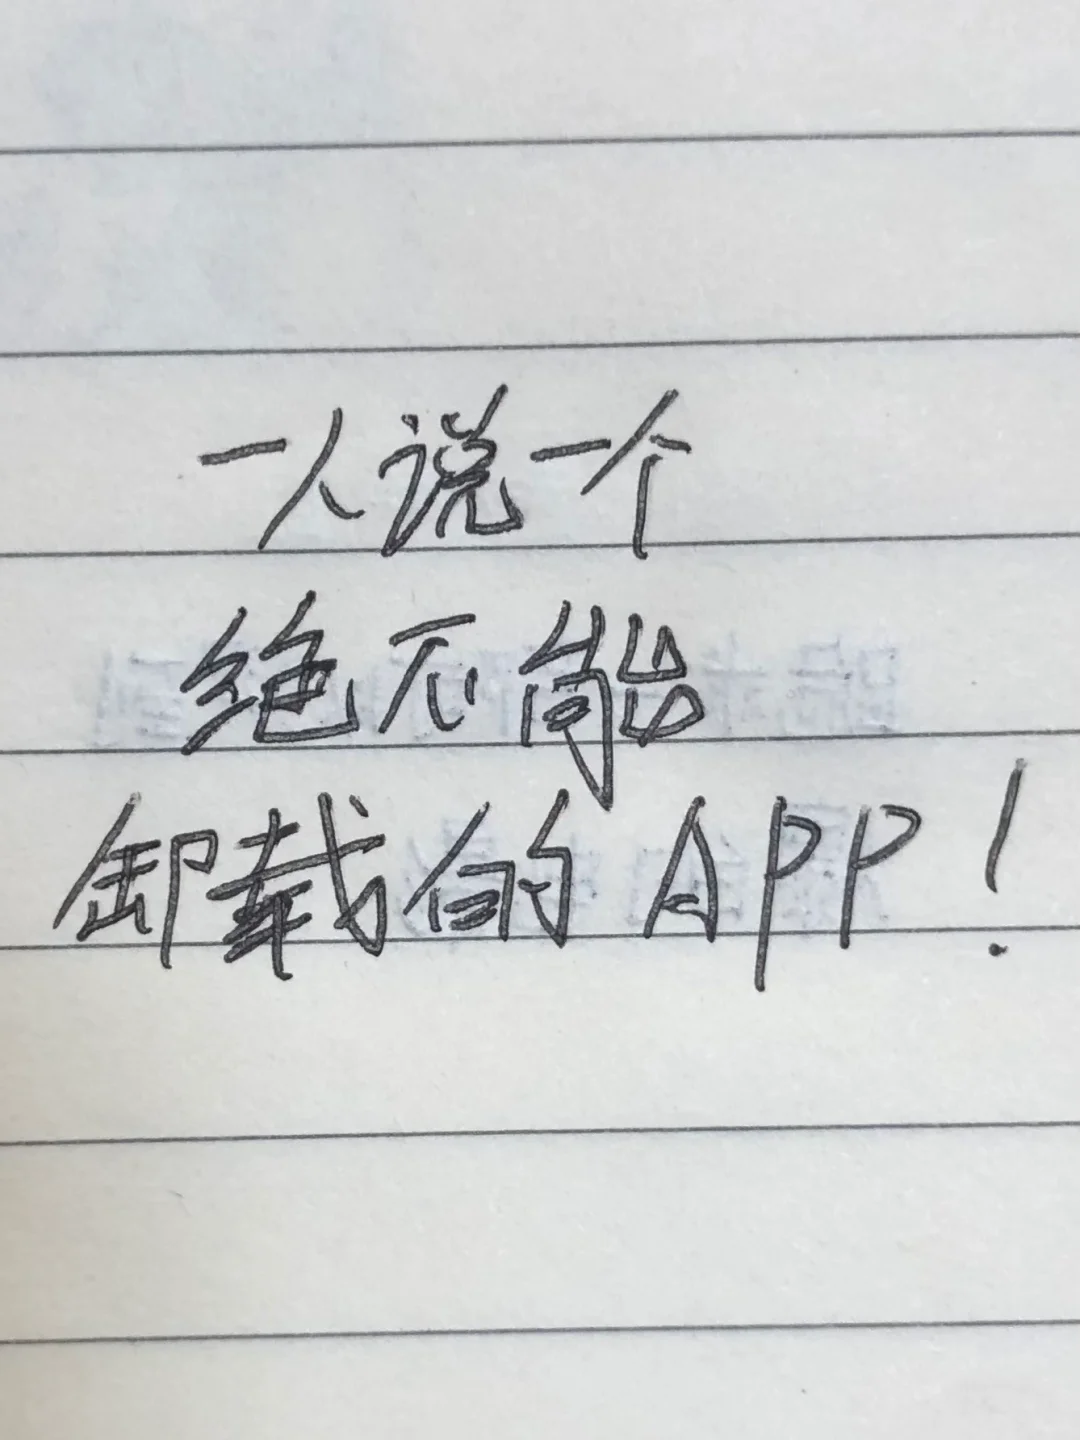 一人说一个
绝不能
卸载的APP!